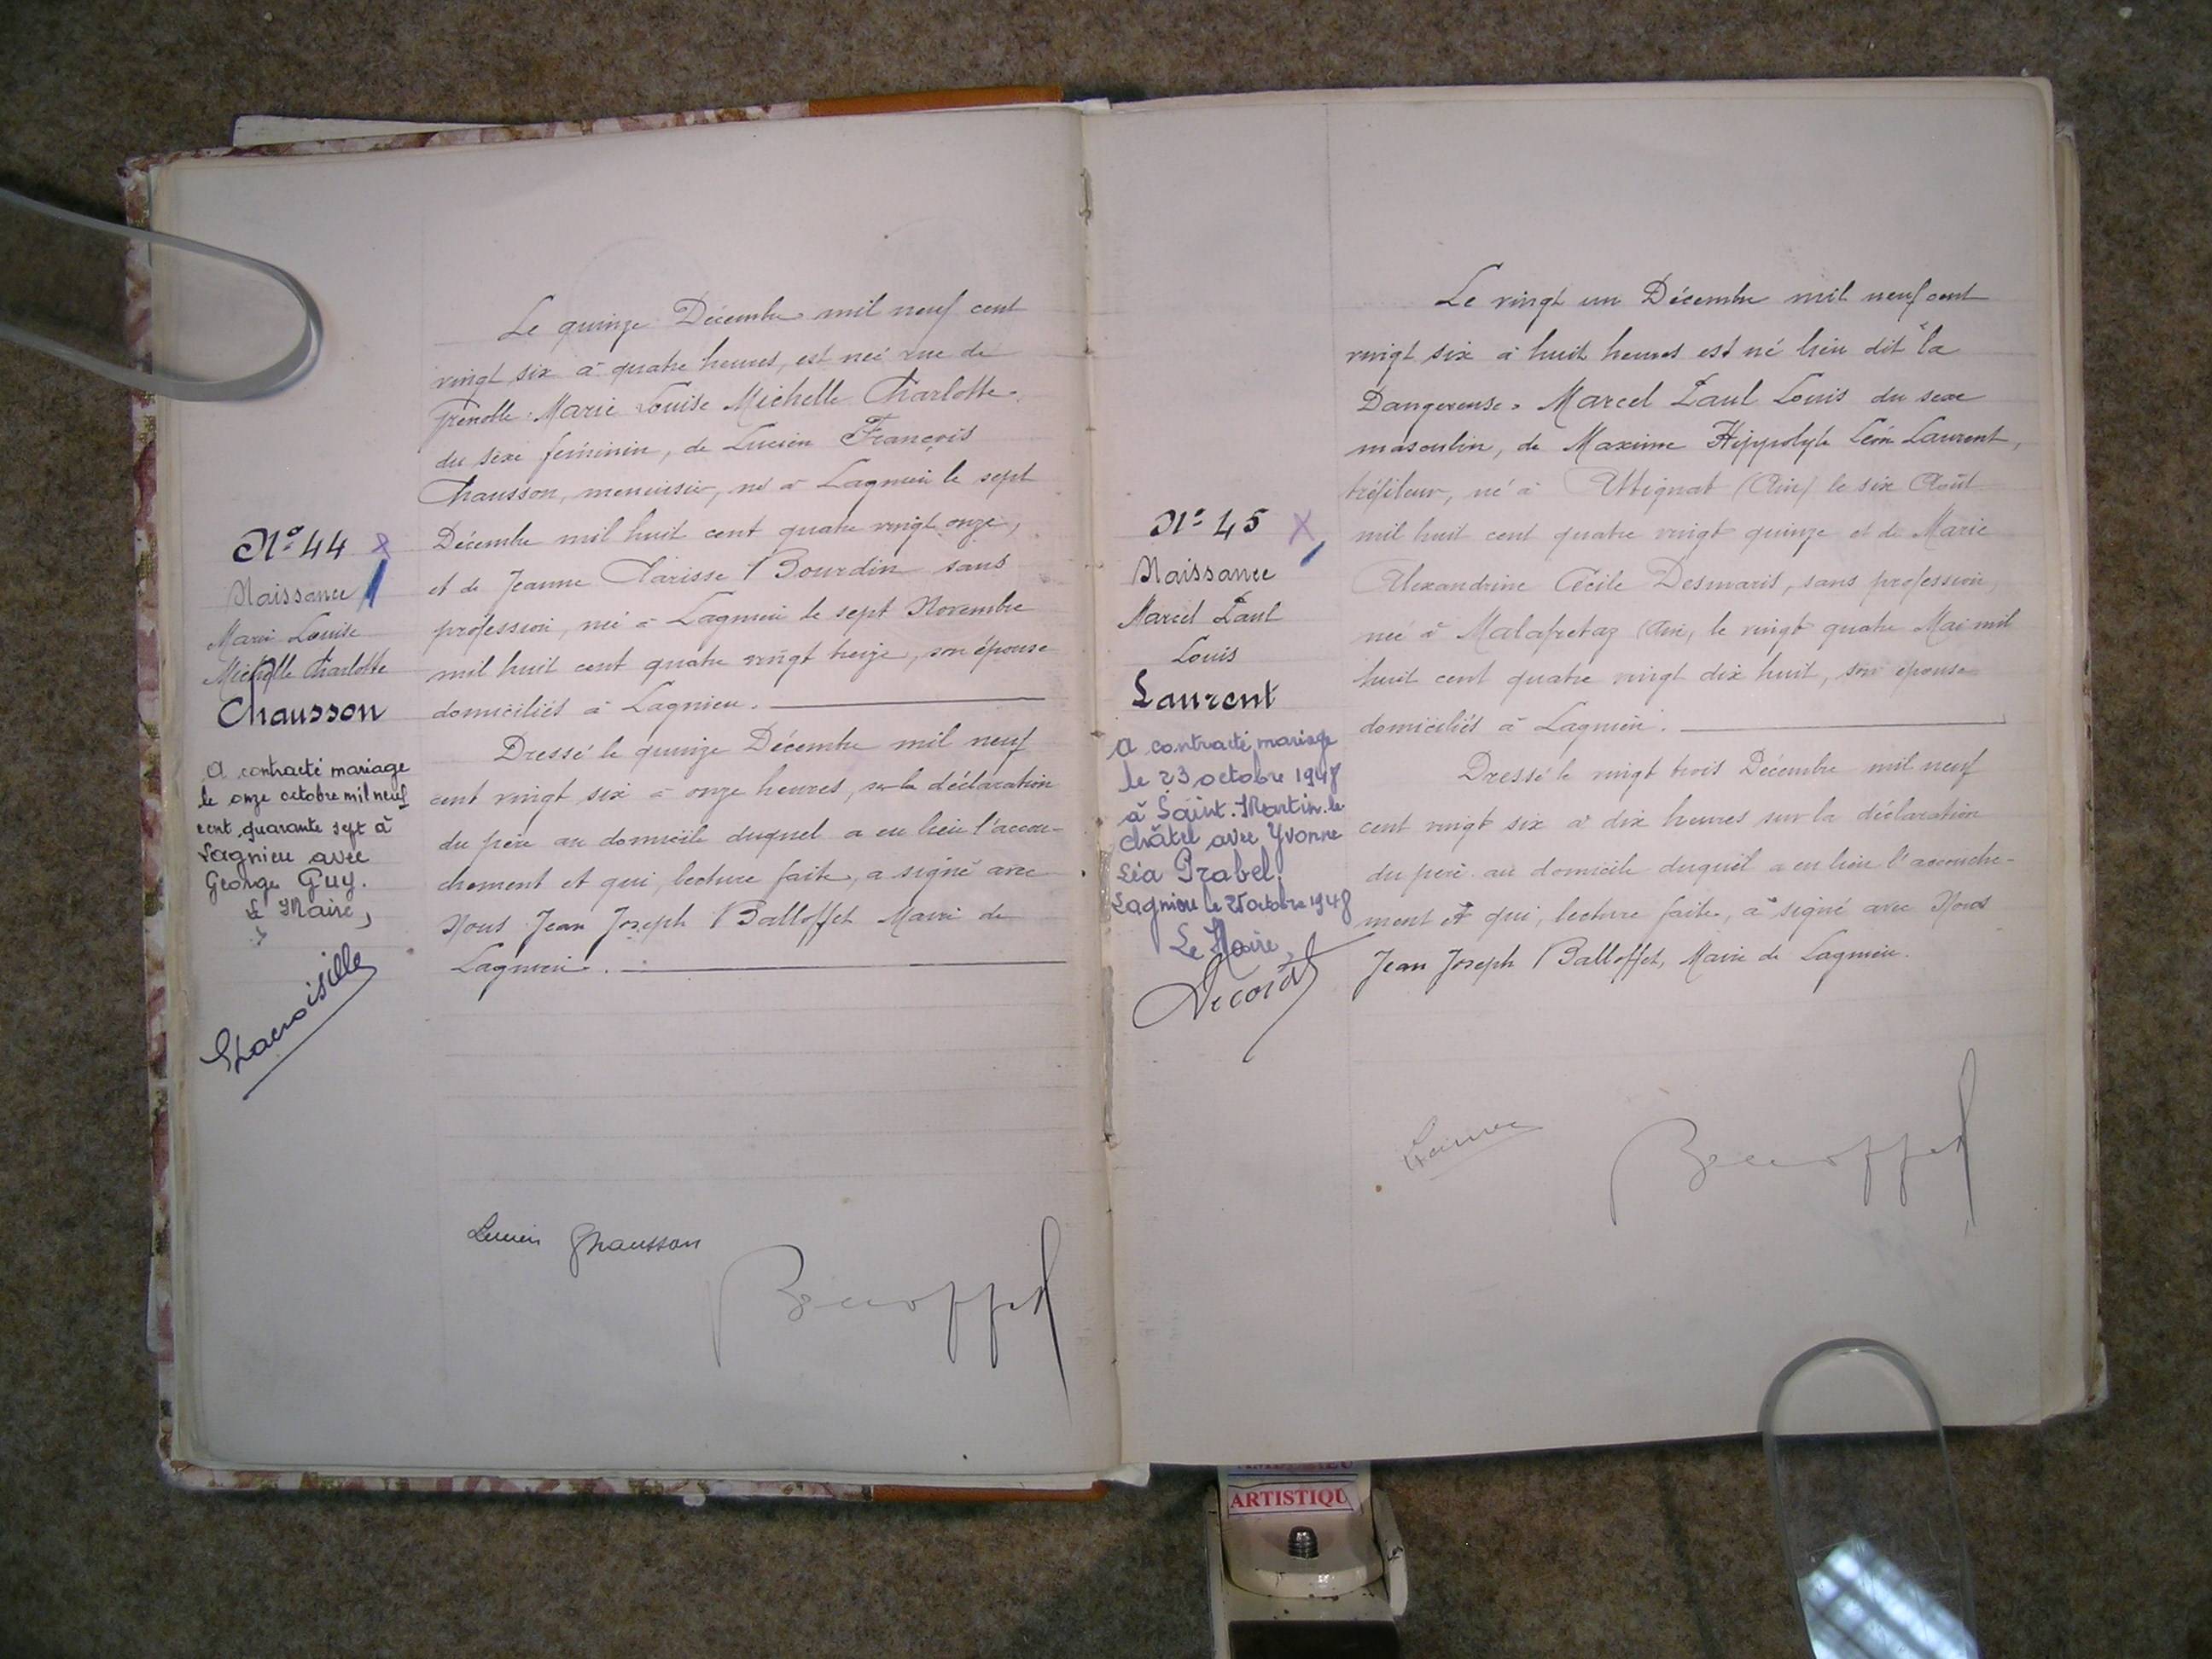 Nº 44
Naissance
Marie Louise
Michelle Charlotte
Chausson
A contracté mariage
le onze octobre mil neuf
cent quarante sept à
Lagnieu avec
George Guy.
Le Maire,
Le quinze Décembre mil neuf cent
vingt six à quatre heures, est née rue de
Grenoble Marie Louise Michelle Charlotte
du sexe féminin, de Lucien François
Chausson, menuisier, né à Lagnieu le sept
Décembre mil huit cent quatre vingt onze,
et de Jeanne Clarisse Bourdin sans
profession, née à Lagnieu le sept Novembre
mil huit cent quatre vingt treize, son épouse
domiciliés à Lagnieu.
Dressé le quinze Décembre mil neuf
cent vingt six à onze heures, sur la déclaration
du père au domicile duquel a eu lieu l'accou-
chement et qui, lecture faite, a signé avec
Nous Jean Joseph Balloffet Maire de
Lagnieu.
Lucien Chausson
Balloffet
Nº 45
Naissance
Marcel Paul
Louis
Laurent
A contracté mariage
le 23 octobre 1948
à Saint-Martin-le-
châtel avec Yvonne
Léa Prabel.
Lagnieu le 25 octobre 1948
Le Maire,
Le vingt un Décembre mil neuf cent
vingt six à huit heures est né lieu dit "la
Dangereuse" Marcel Paul Louis du sexe
masculin, de Maxime Hippolyte Léon Laurent,
tréfileur, né à Attignat (Ain) le six Août
mil huit cent quatre vingt quinze et de Marie
Alexandrine Cécile Desmaris, sans profession,
née à Malafretaz (Ain, le vingt quatre Mai mil
huit cent quatre vingt dix huit, son épouse
domiciliés à Lagnieu.
Dressé le vingt trois Décembre mil neuf
cent vingt six à dix heures sur la déclaration
du père au domicile duquel a eu lieu l'accouche-
ment et qui, lecture faite, a signé avec Nous
Jean Joseph Balloffet, Maire de Lagnieu.
Balloffet
ARTISTIQU